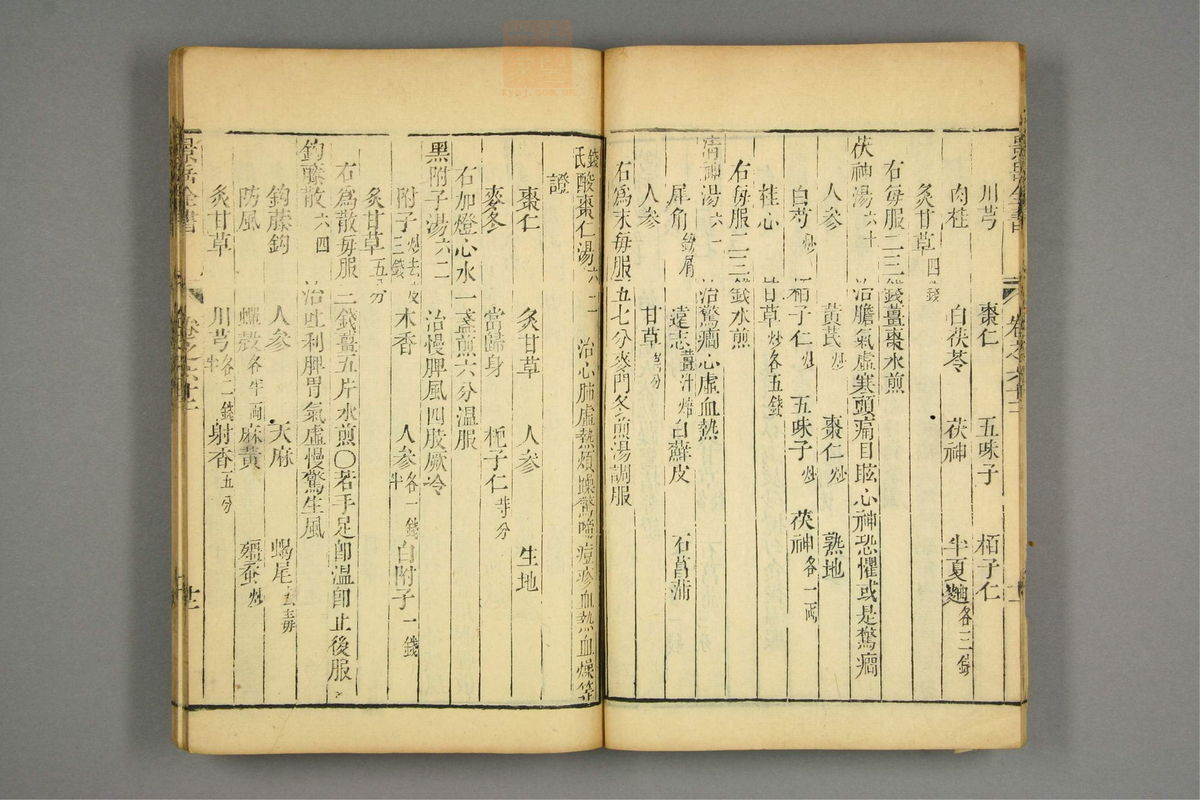 景岳全書
川芎 棗仁 五味子 栢子仁
肉桂 白茯苓 茯神 半夏麯各三錢
炙甘草四錢
右每服二三錢薑棗水煎
茯神湯六十 治膽氣虛寒頭痛目眩心神恐懼或是驚癇
人參 黃芪炒 棗仁炒 熟地
白芍炒 栢子仁炒 五味子炒 茯神各一兩
桂心 甘草炒各五錢
右每服二三錢水煎
清神湯六一 治驚癇心虛血熱
犀角鎊屑 遠志薑汁焙 白蘚皮 石菖蒲
人參 甘草等分
右爲末每服五七分麥門冬煎湯調服
錢氏酸棗仁湯六一 治心肺虛熱煩躁驚啼痘疹血熱血燥等
證
棗仁 炙甘草 人參 生地
麥冬 當歸身 梔子仁等分
右加燈心水一盞煎六分温服
黑附子湯六二 治慢脾風四肢厥冷
附子炒去皮三錢 木香 人參各一錢半 白附子一錢
炙甘草五分
右爲散每服二錢薑五片水煎○若手足卽温卽止後服
鈎藤散六四 治吐利脾胃氣虛慢驚生風
鈎藤鈎 人參 天麻 蝎尾去毒
防風 蟬殼各半兩 麻黃 殭蚕炒
炙甘草 川芎各二錢半 射香五分
景岳全書